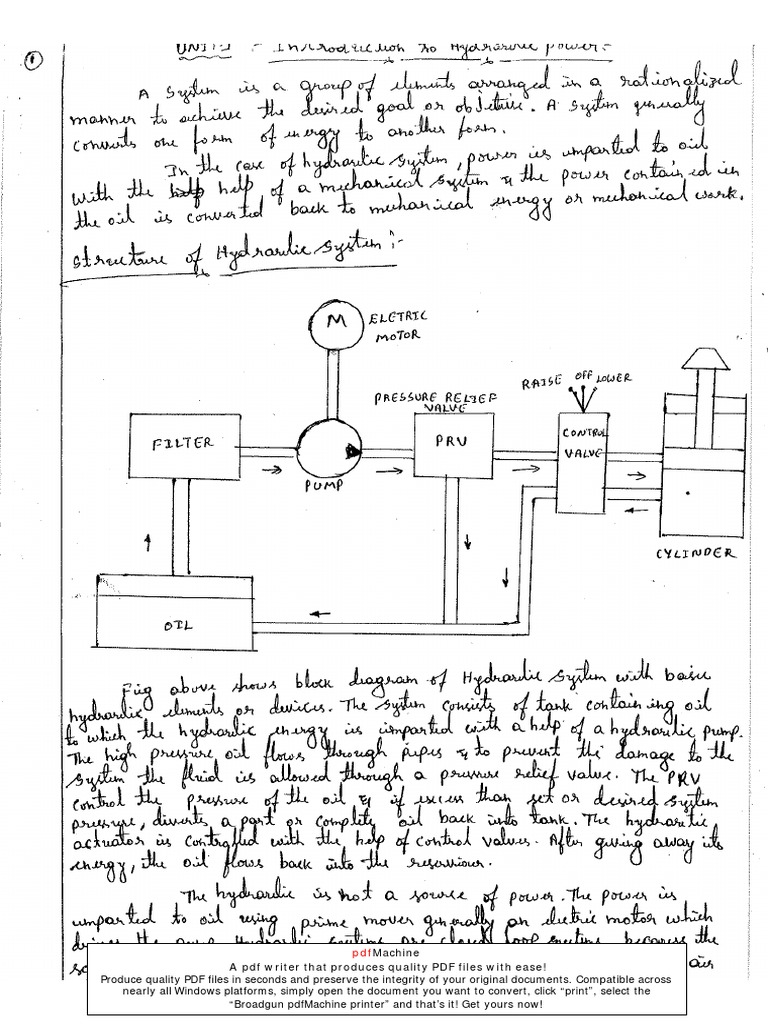 1
UNIT-1 :- Introduction to Hydraulic power:-
A system is a group of elements arranged in a rationalized
manner to achieve the desired goal or objetive. A system generally
converts one form of energy to another form.
In the case of hydraulic system, power is imparted to oil
with the help of a mechanical system & the power contained in
the oil is converted back to mechanical energy or mechanical work.
Structure of Hydraulic System:-
M
ELETRIC
MOTOR
RAISE OFF LOWER
PRESSURE RELIEF
VALVE
FILTER
PRV
CONTROL
VALVE
PUMP
CYLINDER
OIL
Fig above shows block diagram of Hydraulic System with basic
hydraulic elements or devices. The system consists of tank containing oil
to which the hydraulic energy is imparted with a help of a hydraulic pump.
The high pressure oil flows through pipes & to prevent the damage to the
system the fluid is allowed through a pressure relief valve. The PRV
control the pressure of the oil & if excess than set or desired system
pressure, diverts a part or complete oil back into tank. The hydraulic
actuator is controlled with the help of control valves. After giving away its
energy, the oil flows back into the reservior.
The hydraulic is not a source of power. The power is
imparted to oil using prime mover generally an electric motor which
the
air
pdfMachine
A pdf writer that produces quality PDF files with ease!
Produce quality PDF files in seconds and preserve the integrity of your original documents. Compatible across
nearly all Windows platforms, simply open the document you want to convert, click “print”, select the
“Broadgun pdfMachine printer” and that’s it! Get yours now!